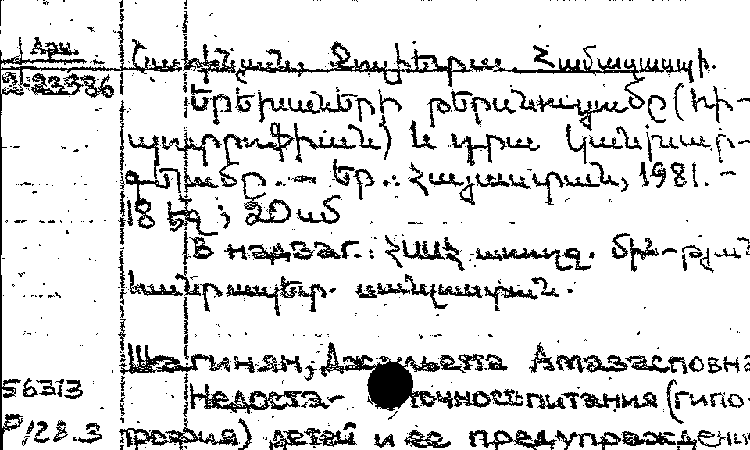 Արմ.
2-22386
Շահինյան, Ջուլիետա Համազասպի.
Երեխաների թերսնուցումը (հի-
պոտրոֆիան) և դրա կանխար-
գելումը. — Եր.: Հայաստան, 1981. -
18 էջ; 20 սմ
В надзаг.: ՀՍՍՀ առողջ. մին-թյան
սանլուստան.
Шагинян, Джульетта Амазасповна
56313 Недоста- точность питания (гипо-
Р/128.3 трофия) детей и ее предупрежден